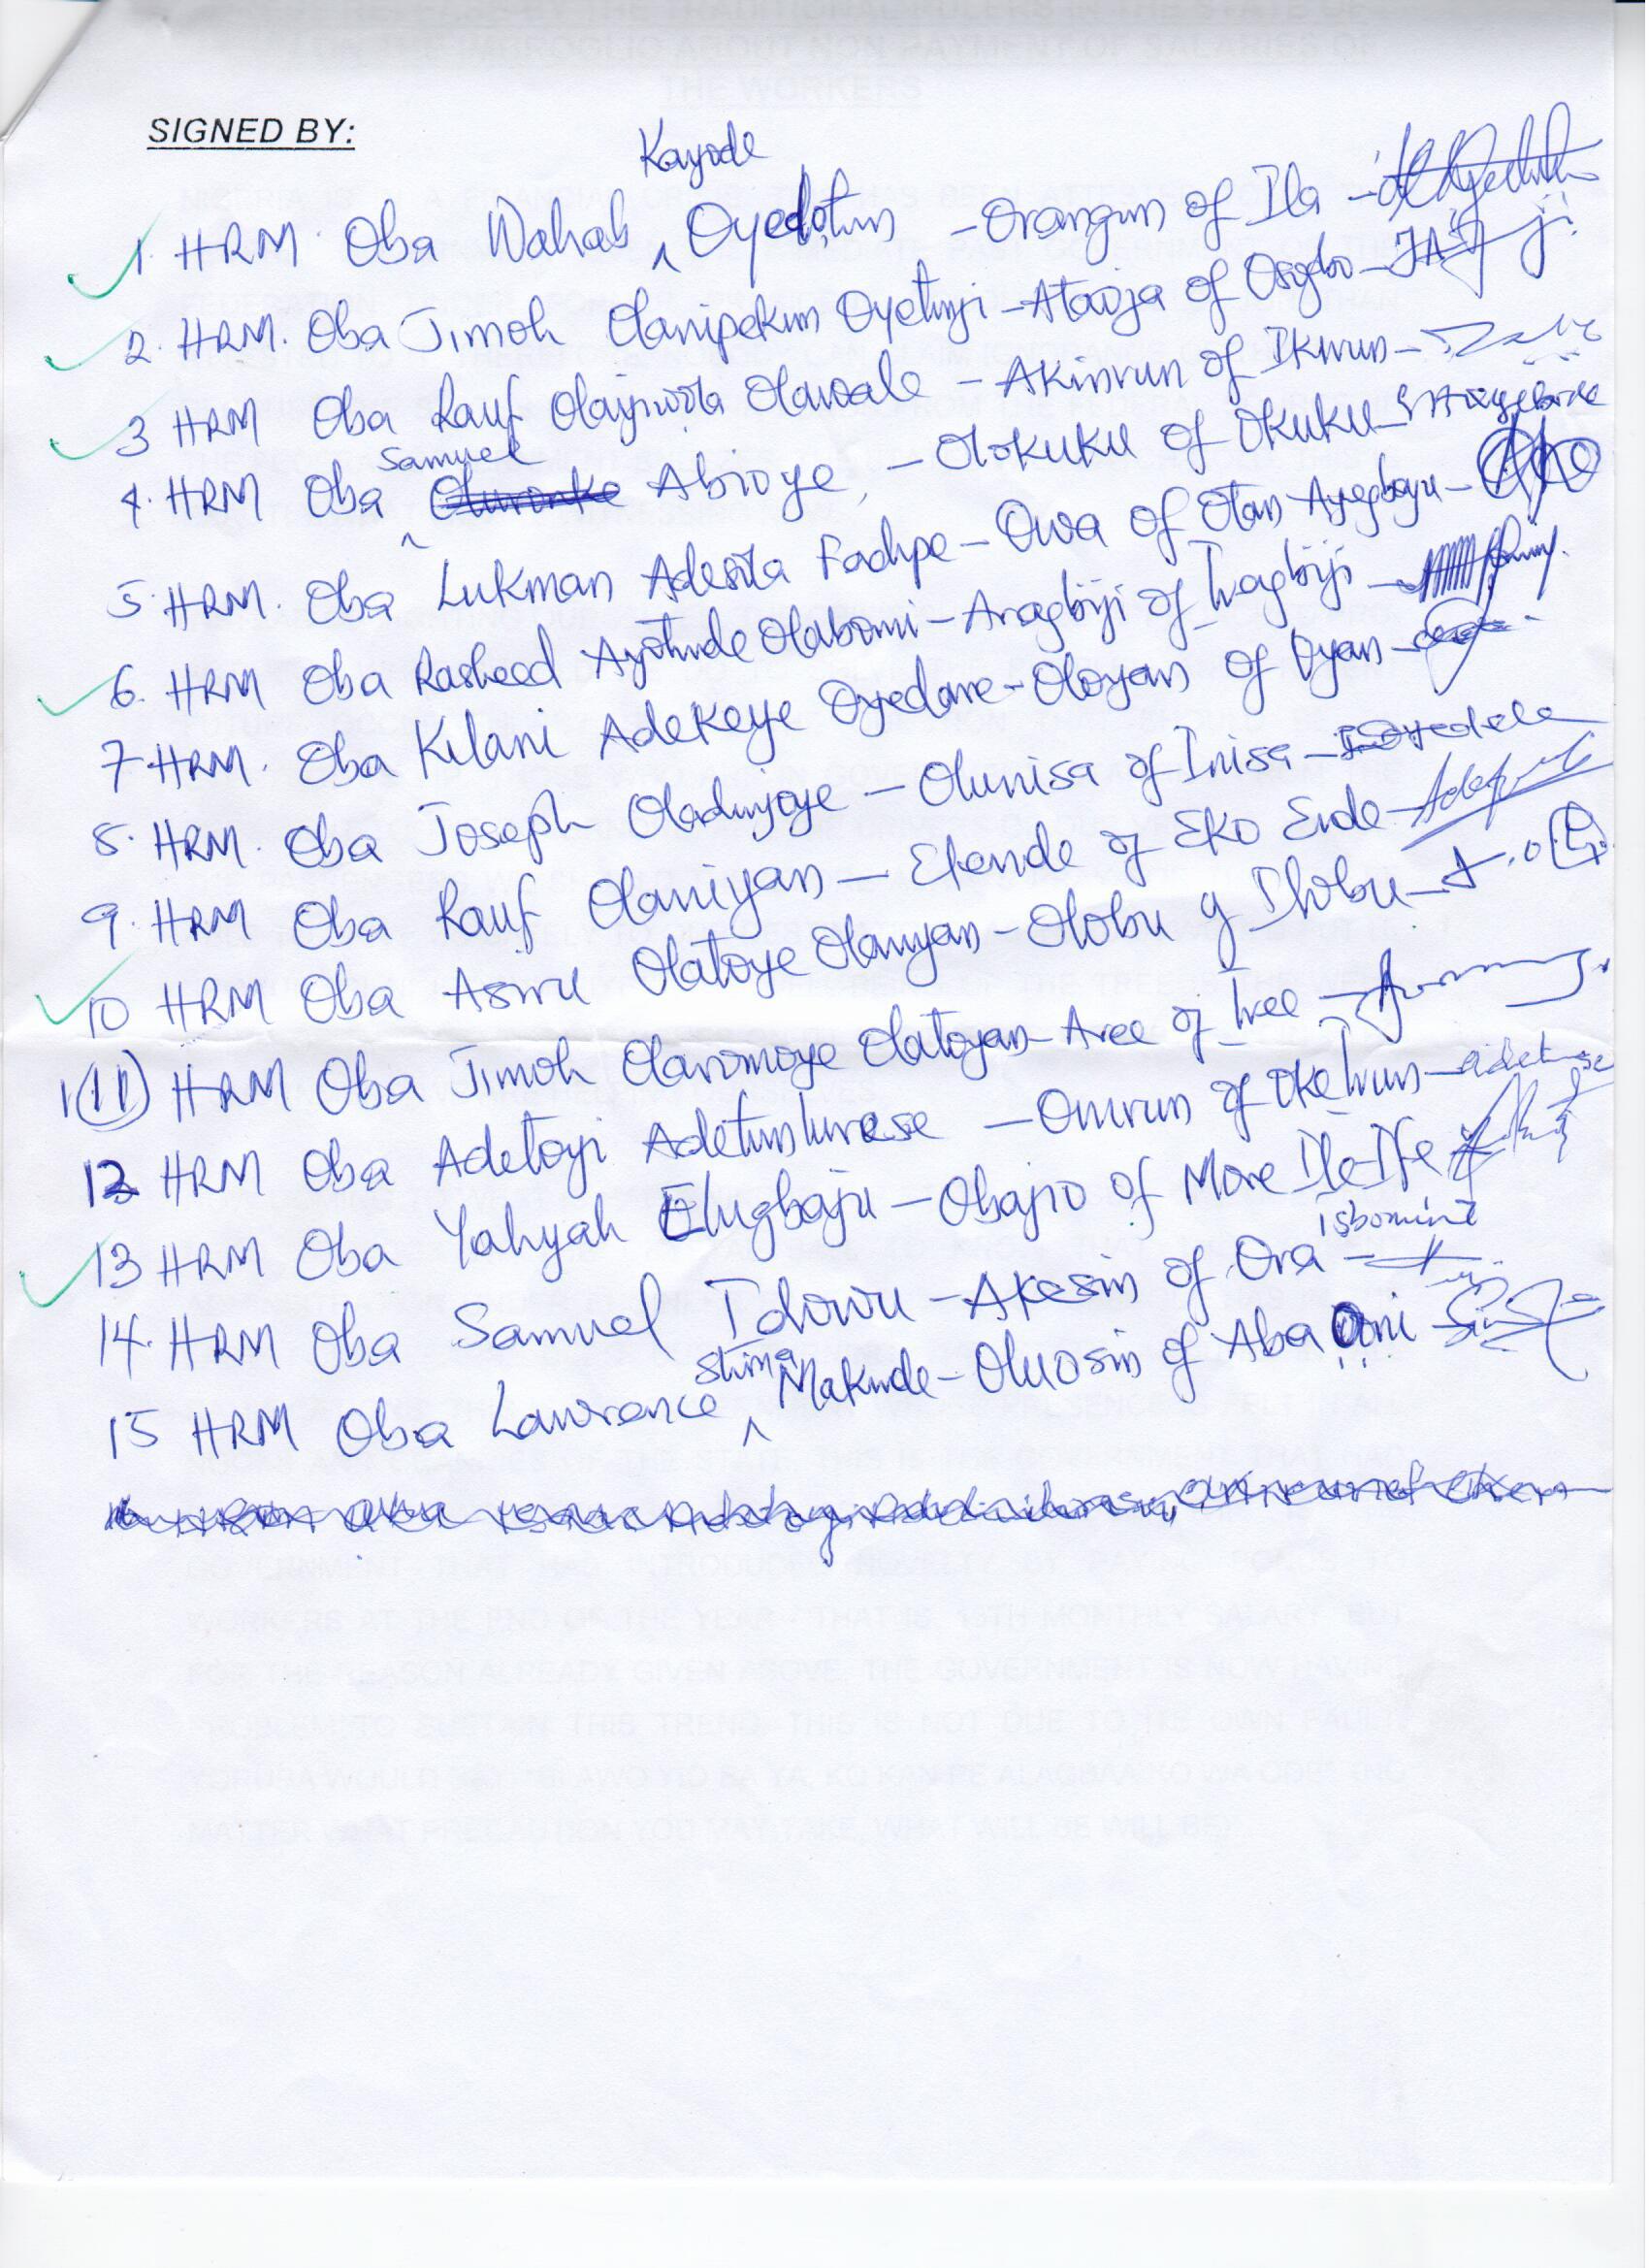 SIGNED BY:
Kayode
1. HRM. Oba Wahab ^ Oyedotun - Orangun of Ila -
2. HRM. Oba Jimoh Olanipekun Oyetunji - Ataoja of Osogbo -
3 HRM Oba Rauf Olayiwola Olawale - Akinrun of Ikirun -
Samuel
4. HRM Oba ^ Abioye, - Olokuku of Okuku -
5. HRM. Oba Lukman Adesola Fadipe - Owa of Otan Ayegbaju -
6. HRM Oba Rasheed Ayotunde Olabomi - Aragbiji of Iragbiji -
7. HRM. Oba Kilani Adekeye Oyedare - Oloyan of Oyan -
8. HRM. Oba Joseph Oladunjoye - Olunisa of Inisa -
9. HRM Oba Rauf Olaniyan - Elende of Eko Ende -
10 HRM Oba Asiru Olatoye Olaniyan - Olobu of Ilobu -
11 HRM Oba Jimoh Olaromoye Olatoyan - Aree of Iree -
12 HRM Oba Adetoyi Adetunlurese - Omirun of Oke Irun -
13 HRM Oba Yahyah Elugbaju - Obajio of More Ile-Ife
14. HRM Oba Samuel Idowu - Akesin of Ora Igbomina -
15 HRM Oba Lawrence ^ Makinde - Oluosin of Aba Oni -